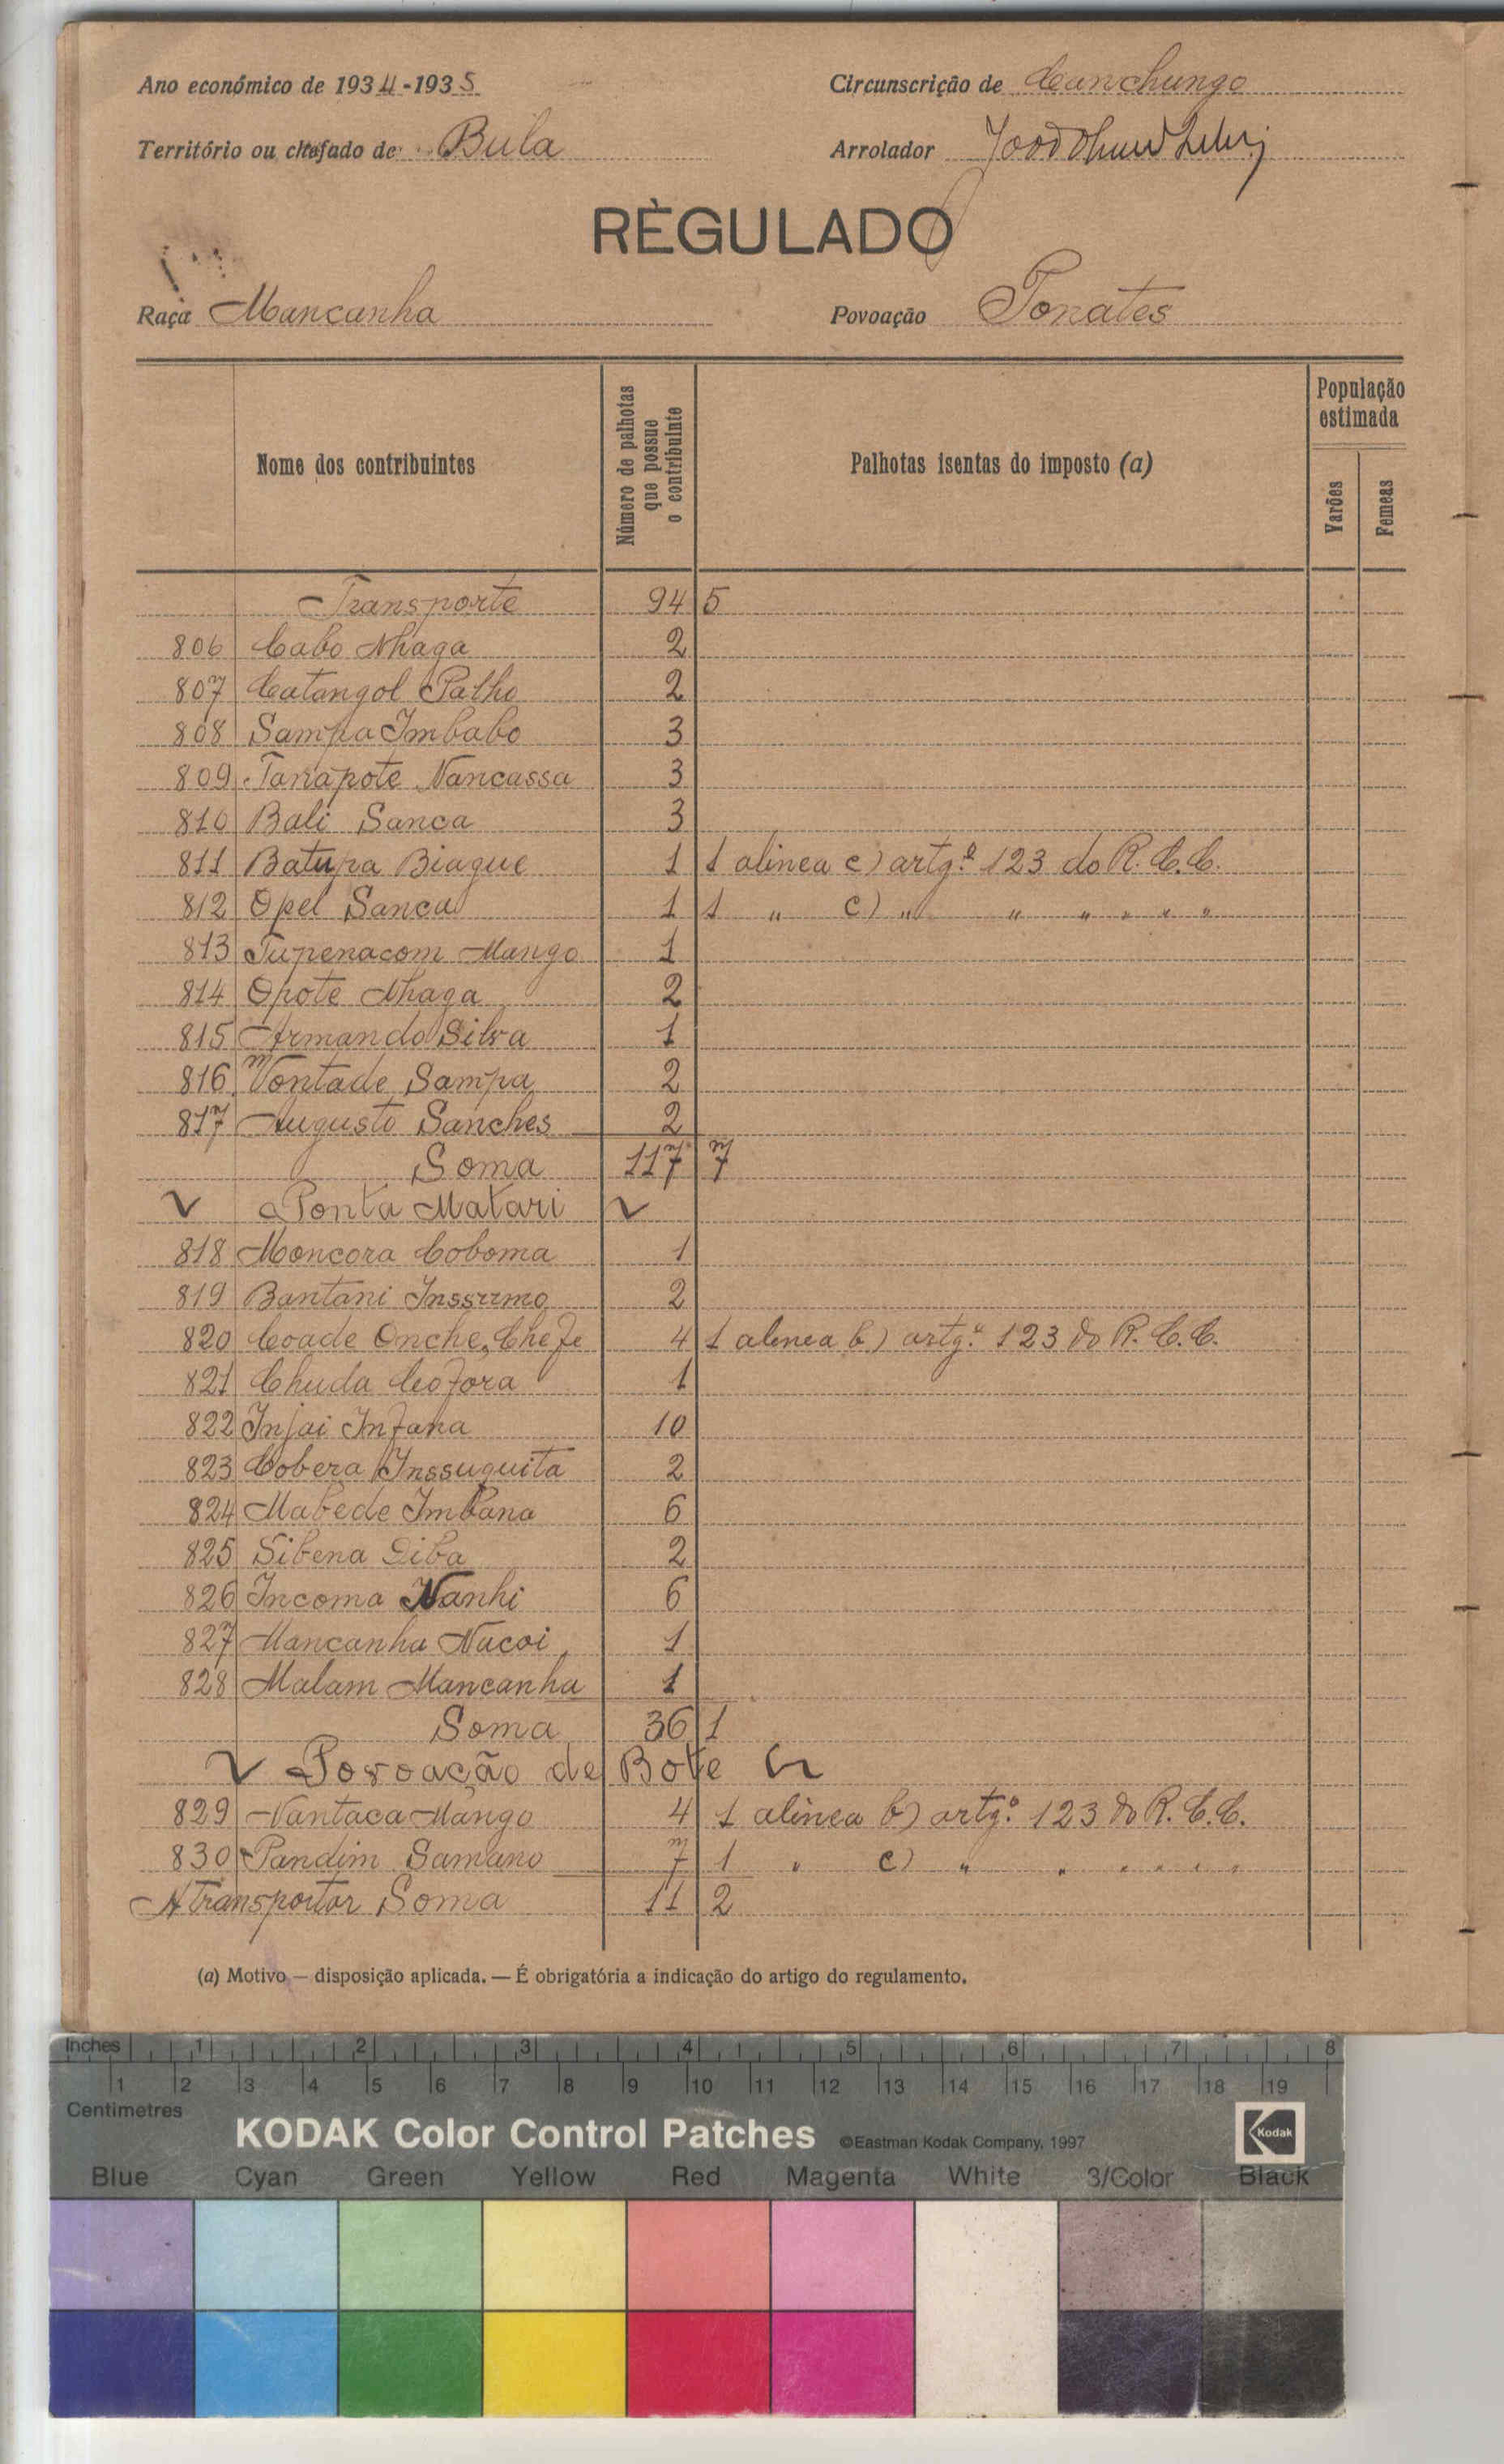 Ano económico de 1934-1935 Circunscrição de Canchungo
Território ou chefado de Bula Arrolador
RÈGULADO
Raça Mancanha Povoação Tonates
Nome dos contribuintes
Número de palhotas que possue o contribuinte
Palhotas isentas do imposto (a)
População estimada
Varões
Femeas
Transporte 94 5
806 Cabo Nhaga 2
807 Catangol Patho 2
808 Sampa Imbabo 3
809 Tanapote Nancassa 3
810 Bali Sanca 3
811 Batupa Biague 1 1 alinea c) artgº 123 do R. C. C.
812 Opel Sanca 1 1 " c) " " " " " "
813 Tupenacom Mango 1
814 Opote Nhaga 2
815 Armando Silva 1
816 Vontade Sampa 2
817 Augusto Sanches 2
Soma 117 7
Ponta Matari
818 Moncora Coboma 1
819 Bantani Inssumo 2
820 Coade Onche, Chefe 4 1 alinea b) artg.º 123 do R. C. C.
821 Chuda Cofora 1
822 Injai Infana 10
823 Cobera Inssuquita 2
824 Mabede Imbana 6
825 Sibena Diba 2
826 Incoma Nanhi 6
827 Mancanha Nacoi 1
828 Malam Mancanha 1
Soma 36 1
Povoação de Bote
829 Nantaca Mango 4 1 alinea b) artg.º 123 do R. C. C.
830 Pandim Samano 7 1 " c) " " " " " "
A transportar Soma 11 2
(a) Motivo — disposição aplicada. — É obrigatória a indicação do artigo do regulamento.
Inches 1 2 3 4 5 6 7 8
1 2 3 4 5 6 7 8 9 10 11 12 13 14 15 16 17 18 19
Centimetres
KODAK Color Control Patches ©Eastman Kodak Company, 1997 Kodak
Blue Cyan Green Yellow Red Magenta White 3/Color Black